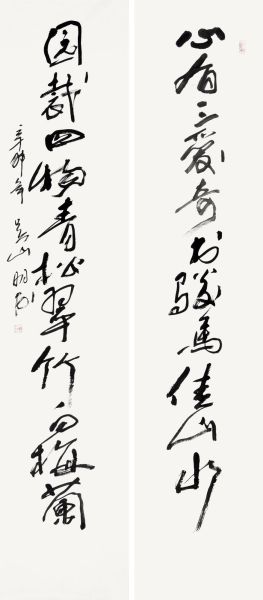 心有三爱奇书骏马佳山水
园栽四物青松翠竹白梅兰
辛卯年 吴山明书